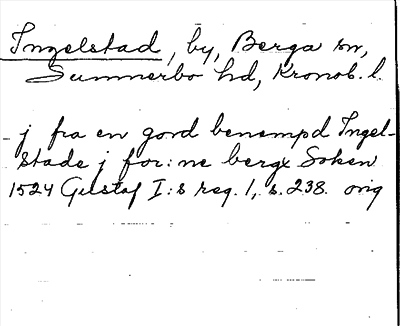 Ingelstad, by, Berga sn,
Sunnerbo hd, Kronob. l.
j fra en gord benempd Ingel-
stade j for:ne berge Soken
1524 Gustaf I:s reg. 1, s. 238. orig